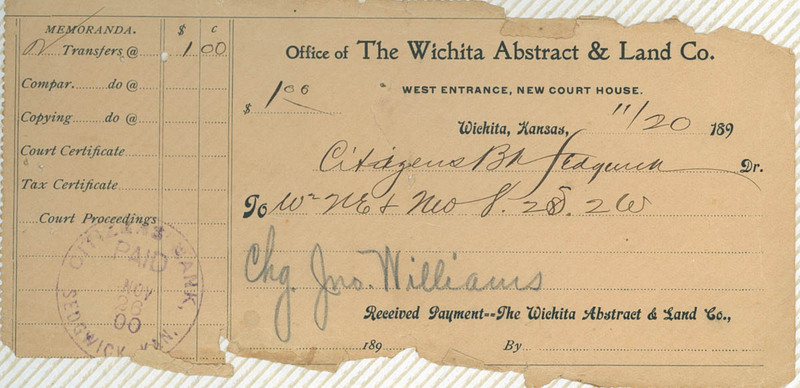 MEMORANDA. $ c
Transfers @ 1 00
Compar. do @
Copying do @
Court Certificate
Tax Certificate
Court Proceedings
CITIZENS BANK,
PAID
NOV
00
SEDGWICK, KAN.
Office of The Wichita Abstract & Land Co.
WEST ENTRANCE, NEW COURT HOUSE.
$ 1 00
Wichita, Kansas, 11/20 189
Citizens Bk Sedgwick Dr.
To W NE & 8. 2S. 2W
Chg. Jno. Williams
Received Payment--The Wichita Abstract & Land Co.,
189 By